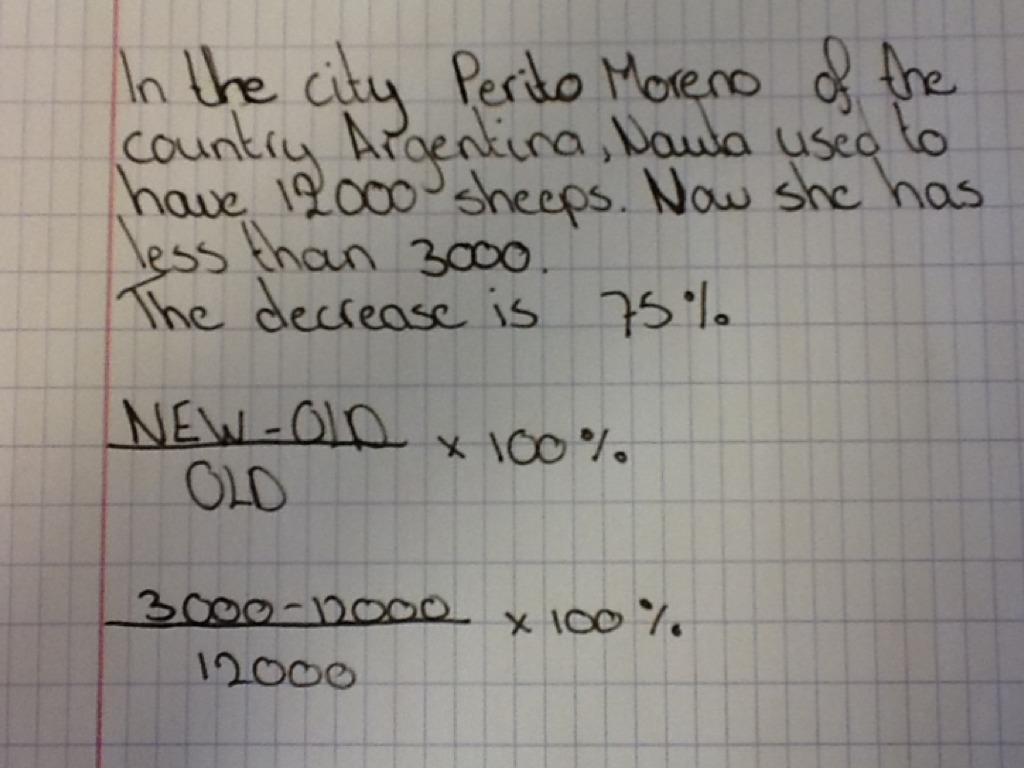 In the city Perito Moreno of the
country Argentina, Nauta used to
have 12000 sheeps. Now she has
less than 3000.
The decrease is 75%
NEW-OLD
OLD
x 100%
3000-12000
12000
x 100%